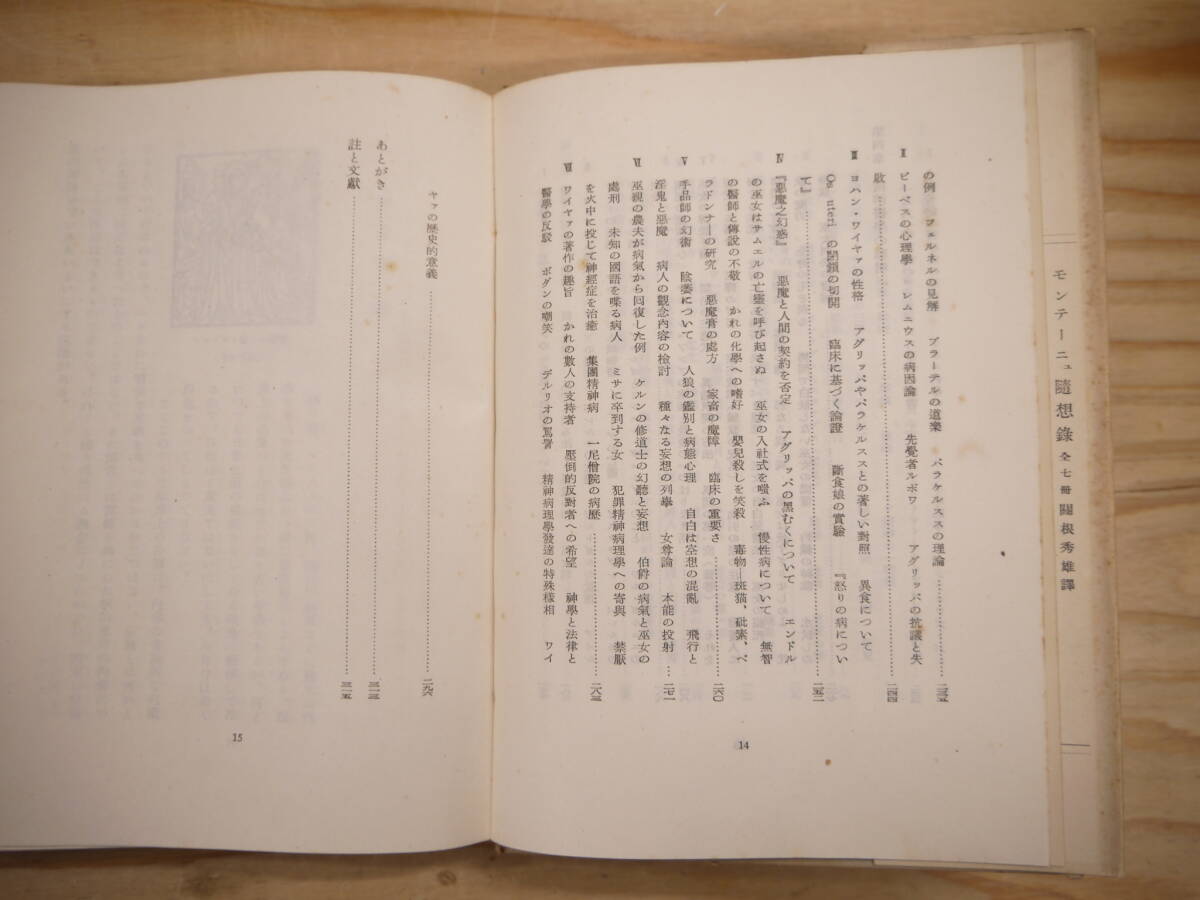 モンテーニュ 隨想錄 全七冊 關根秀雄譯
の例 フェルネルの見解 プラーテルの道樂 パラケルススの理論 二三五
Ⅱ ビーベスの心理學 レムニウスの病因論 先覺者ルボワ アグリッパの抗議と失
敗 二四四
Ⅲ ヨハン・ワイヤァの性格 アグリッパやパラケルススとの著しい對照 異食について
Os uteri の閉鎖の切開 臨床に基づく論證 斷食娘の實驗 『怒りの病につい
て』 二五二
Ⅳ 『惡魔之幻惑』 惡魔と人間の契約を否定 アグリッパの黑むくについて エンドル
の巫女はサムエルの亡靈を呼び起さぬ 巫女の入社式を嗤ふ 慢性病について 無智
の醫師と傳說の不敬 かれの化學への嗜好 嬰兒殺しを笑殺 毒物―斑猫、砒素、ベ
ラドンナ―の研究 惡魔膏の處方 家畜の魔障 臨床の重要さ 二六〇
Ⅴ 手品師の幻術 陰萎について 人狼の鑑別と病態心理 自白は空想の混亂 飛行と
淫鬼と惡魔 病人の觀念內容の檢討 種々なる妄想の列擧 女尊論 本能の投射 二七一
Ⅵ 巫覡の農夫が病氣から回復した例 ケルンの修道士の幻聽と妄想 伯爵の病氣と巫女の
處刑 未知の國語を喋る病人 ミサに卒到する女 犯罪精神病理學への寄與 禁厭
を火中に投じて神經症を治癒 集團精神病 一尼僧院の病歷 二八三
Ⅶ ワイヤァの著作の趣旨 かれの數人の支持者 壓倒的反對者への希望 神學と法律と
醫學の反駁 ボダンの嘲笑 デルリオの罵詈 精神病理學發達の特殊樣相 ワイ
14
ヤァの歷史的意義 二九六
あとがき 三一三
註と文獻 三一五
15